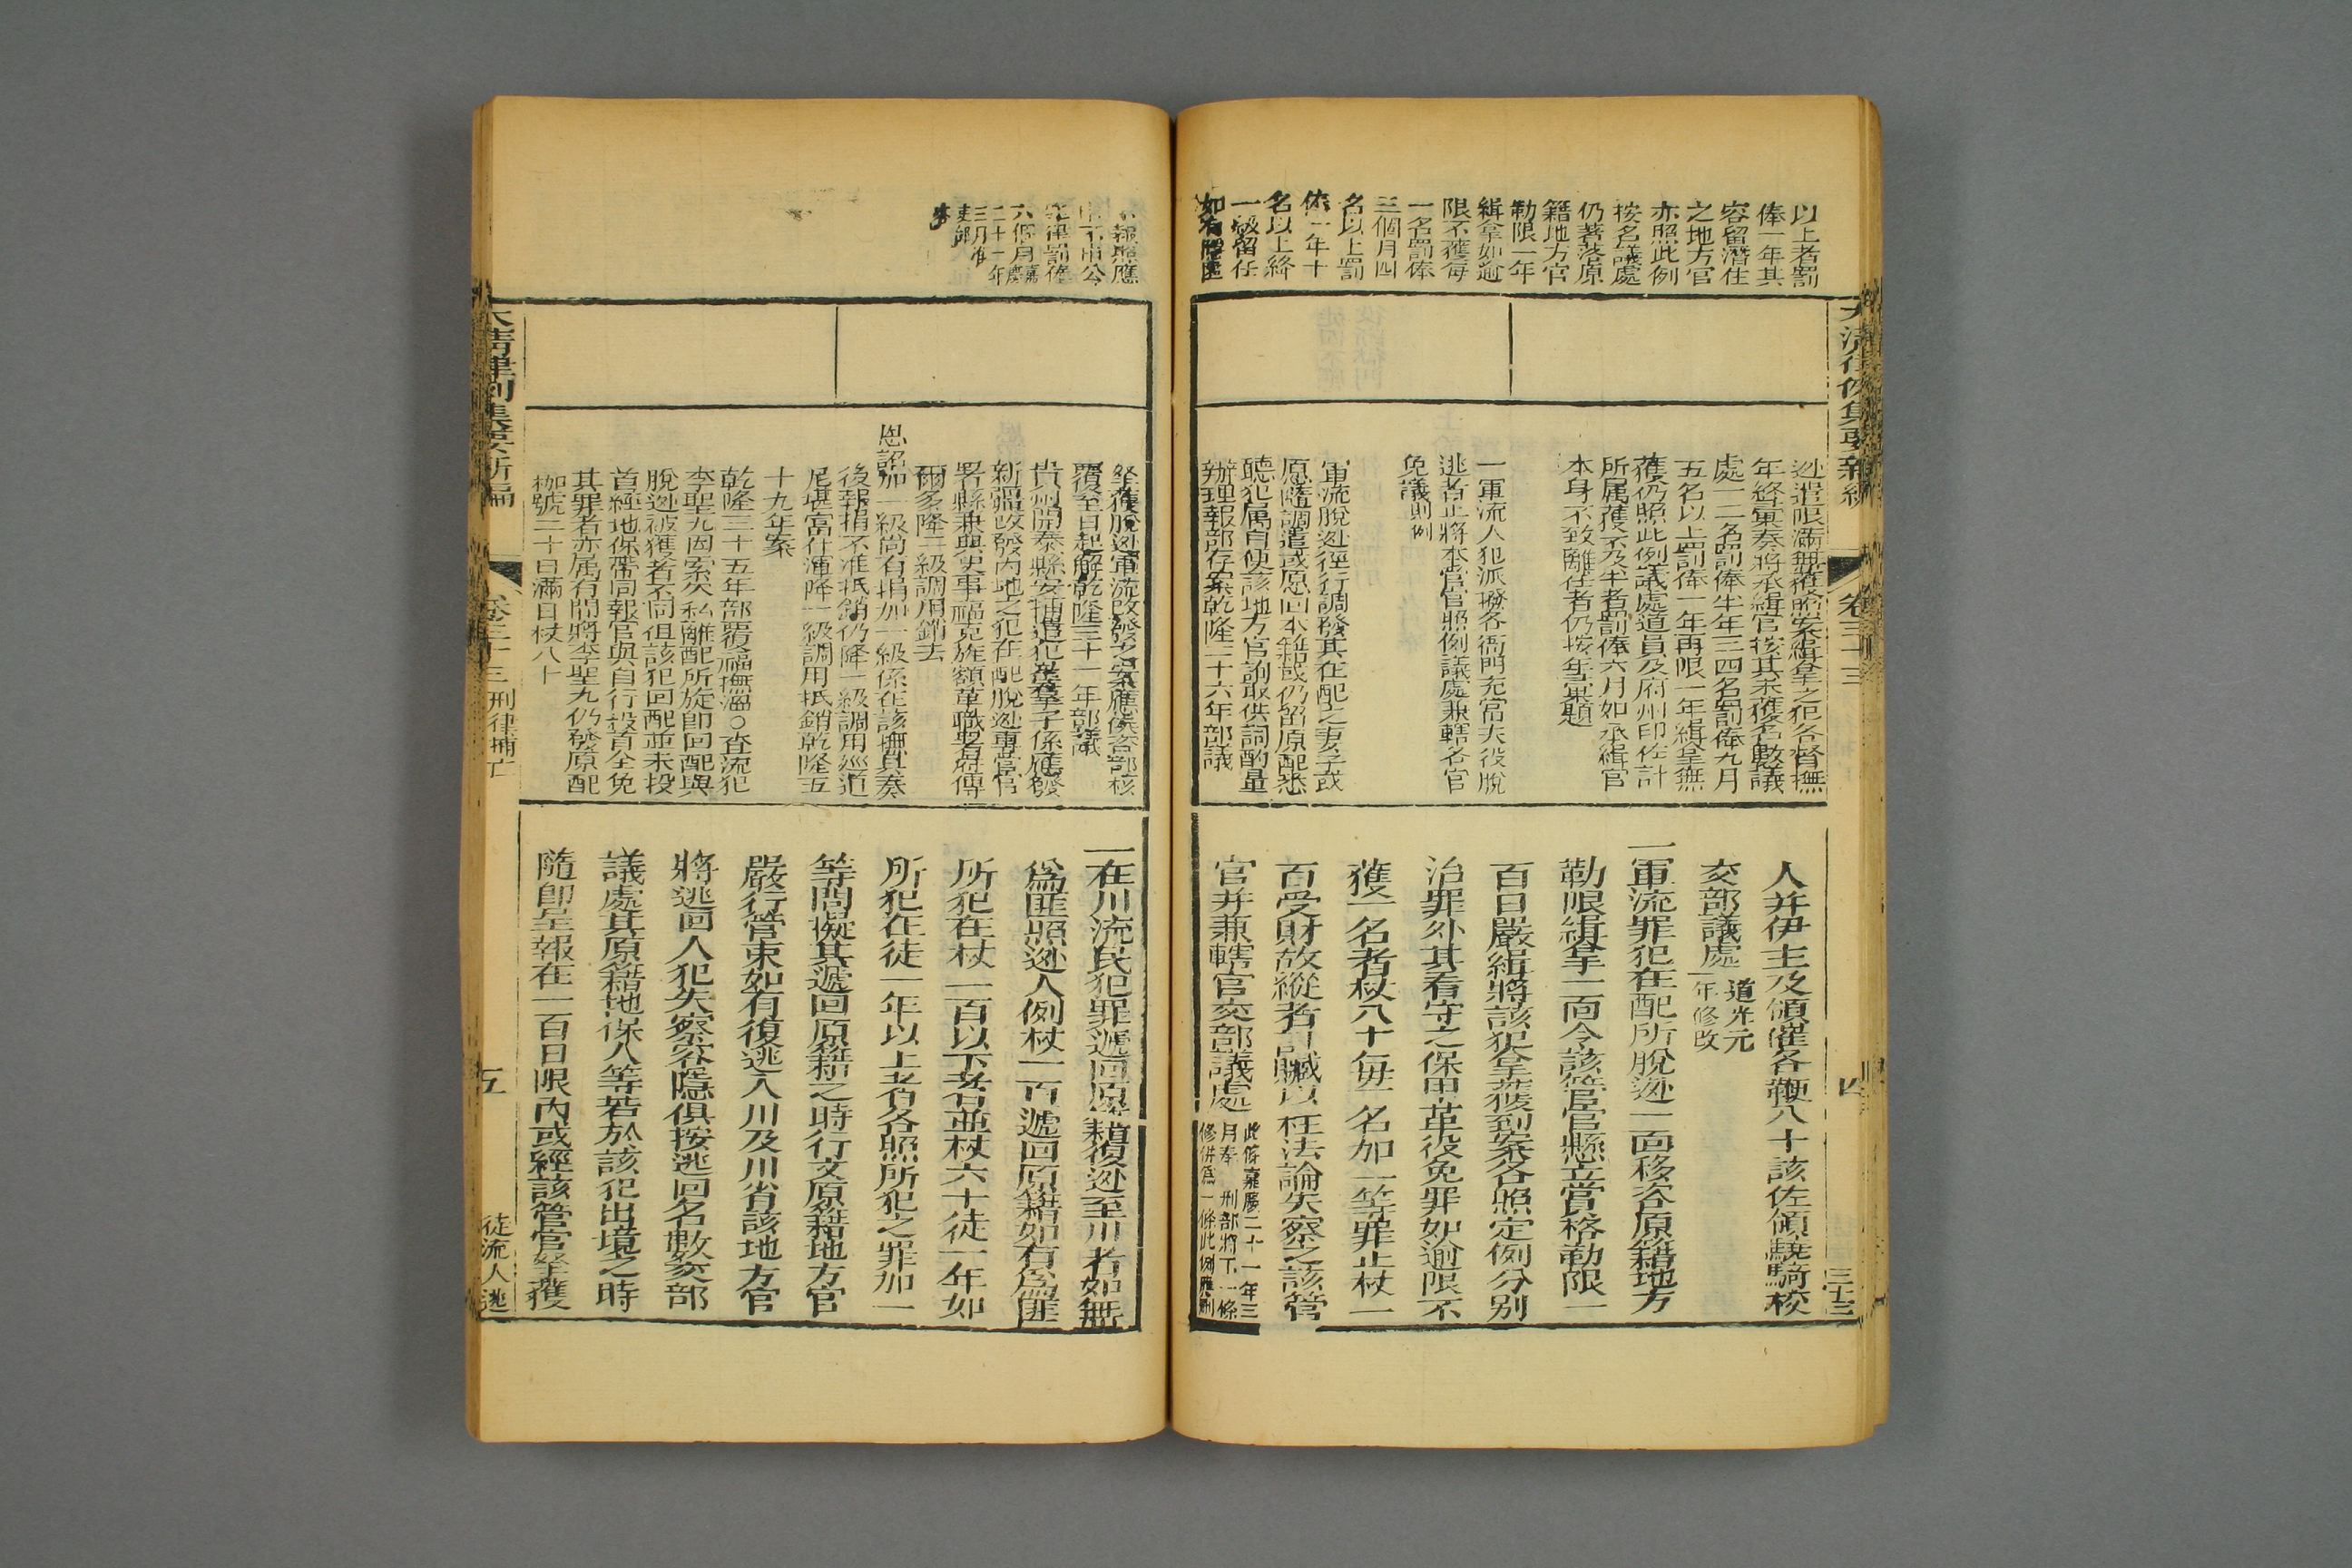 以上者罰
俸一年其
容留潛住
之地方官
亦照此例
按名議處
仍著落原
籍地方官
勒限一年
緝拿如逾
限不獲每
一名罰俸
三個月四
名以上罰
俸一年十
名以上絳
一級留任
如有隱匿
逃遣限滿無獲照案緝拿之犯各督撫
年終彙奏將承緝官按其未獲名數議
處一二名罰俸半年三四名罰俸九月
五名以上罰俸一年再限一年緝拿無
獲仍照此例議處道員及府州印佐計
所属獲不及半者罰俸六月如承緝官
本身不致離任者仍按年彙題
一軍流人犯派撥各衙門充當夫役脫
逃者止將本管官照例議處兼轄各官
免議則例
軍流脫逃徑行調發其在配之妻子或
原隨調遣或愿回本籍或仍留原配悉
聽犯属自使該地方官訊取供詞酌量
辦理報部存案乾隆二十六年部議
人并伊主及領催各鞭八十該佐領驍騎校
交部議處道光元
年修改
一軍流罪犯在配所脫逃一面移咨原籍地方
勒限緝拿一面令該管官懸立賞格勒限一
百日嚴緝將該犯拿獲到案各照定例分别
治罪外其看守之保甲革役免罪如逾限不
獲一名者杖八十每一名加一等罪止杖一
百受財故縱者計贓以枉法論失察之該管
官并兼轄官交部議處此條嘉慶二十一年三
月奉 刑部將下一條
修併為一條此例應刪
大清律例集要新編 卷三十三 四
六個月嘉慶
二十一年
拏獲脫逃軍流改發之案應俟咨部核
覆至日起解乾隆三十一年部議
貴州開泰縣安插遣犯
新疆改發內地之犯在配脫逃專管官
署縣兼典史事福克旌額革職署府傳
爾多降二級調用銷去
恩詔加一級尚有捐加一級係在該撫具奏
後報捐不准抵銷仍降一級調用巡道
尼堪富什渾降一級調用抵銷乾隆五
十九年案
乾隆三十五年部覆福撫溫○查流犯
李聖九因索欠私離配所旋即回配與
脫逃被獲者不同但該犯回配並未投
首經地保帶同報官與自行投首全免
其罪者亦属有間將李聖九仍發原配
枷號二十日滿日杖八十
一在川流民犯罪遞回原籍復逃至川者如無
為匪照逃人例杖一百遞回原籍如有為匪
所犯在杖一百以下者並杖六十徒一年如
所犯在徒一年以上者各照所犯之罪加一
等問擬其遞回原籍之時行文原籍地方官
嚴行管束如有復逃入川及川省該地方官
將逃回人犯失察容隱俱按逃回名數交部
議處其原籍地保人等若於該犯出境之時
隨即呈報在一百日限內或經該管官拏獲
大清律例集要新編 卷三十三 刑律捕亡 五 徒流人逃